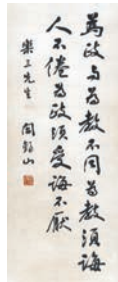 為政与為教不同為教須誨
人不倦為政須受誨不厭
樂三先生 閻錫山